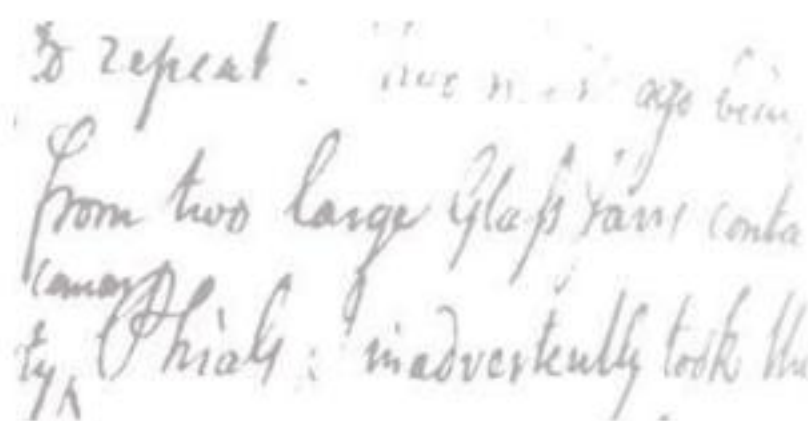 to repeat. Two n ago bein
from two large Glaſs Jars conta
common
ty Phials: inadvertently took the